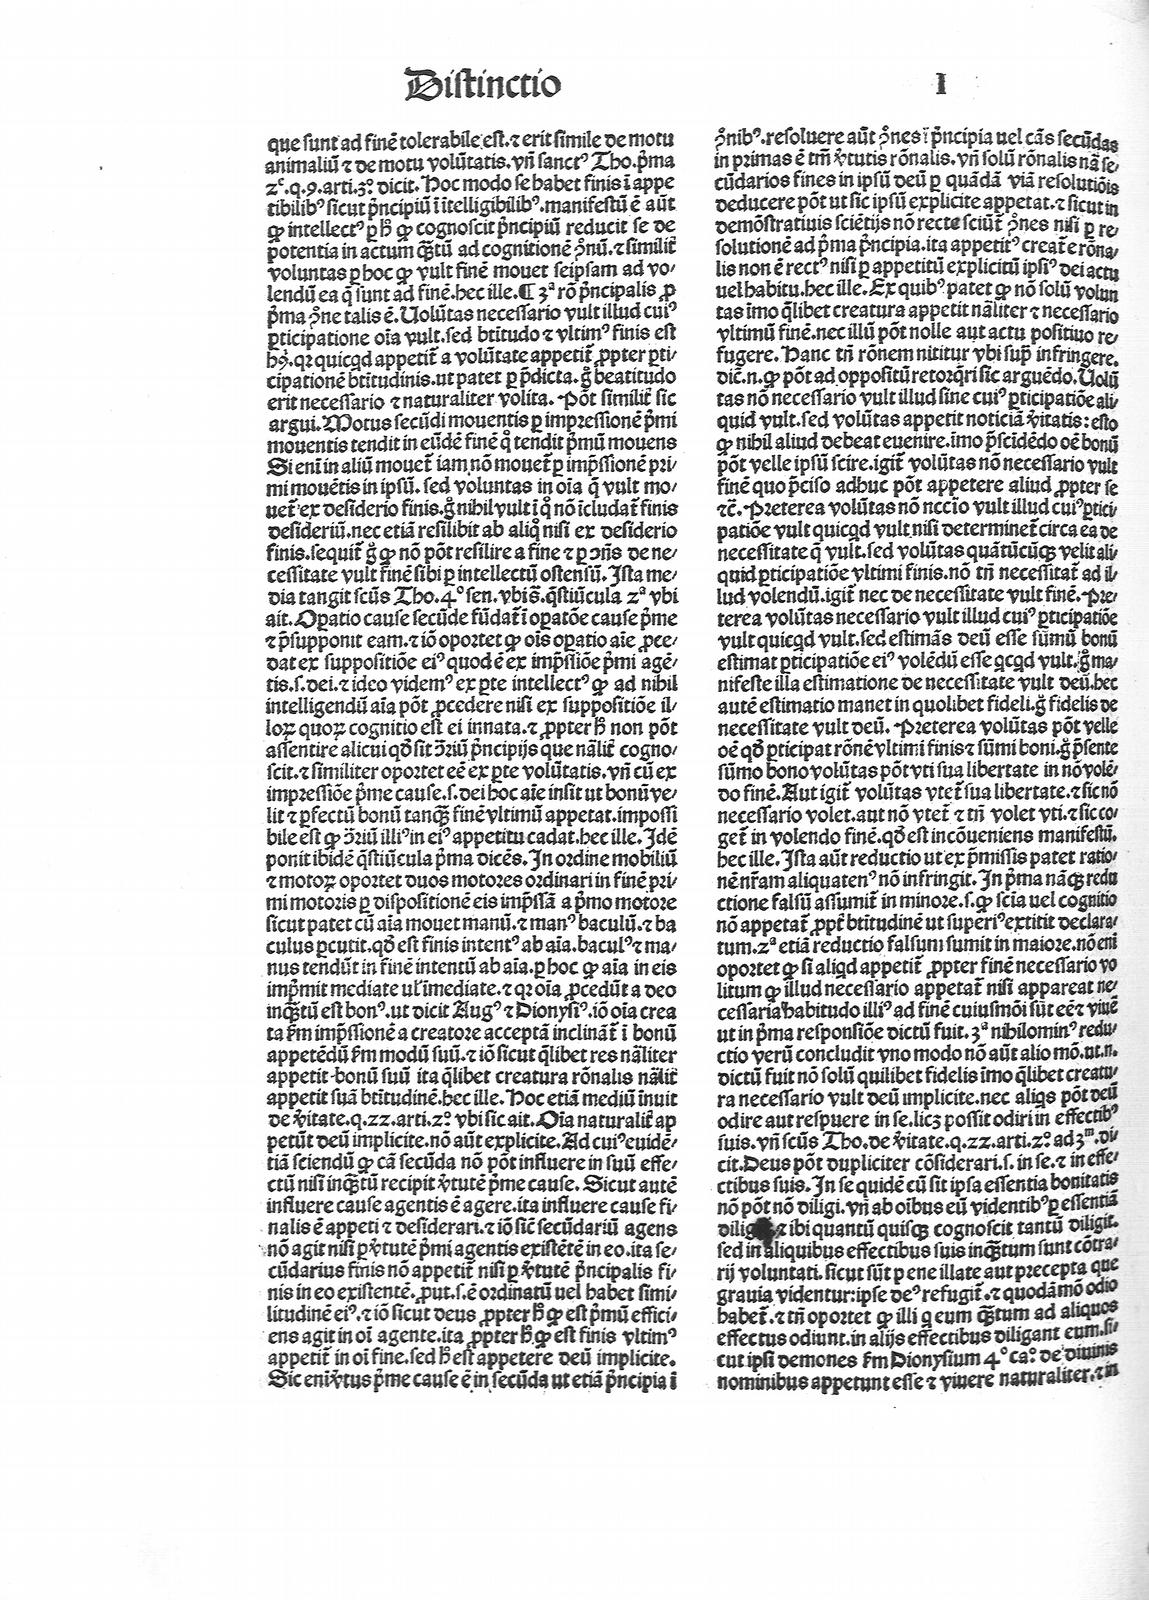 Distinctio I
que sunt ad finē tolerabile est. ⁊ erit simile de motu
animaliū ⁊ de motu volūtatis. vñ sanctꝰ Tho. p̄ma
2ᵉ. q. 9. arti. 3º dicit. Hoc modo se habet finis ī appe
tibilibꝰ sicut p̄ncipiū ī ītelligibilibꝰ. manifestū ē aūt
ꝙ intellectꝰ ꝑ hͦ ꝙ cognoscit p̄ncipiū reducit se de
potentia in actum qᷓtū ad cognitionē ꝯnū. ⁊ similit̄
voluntas ꝑ hoc ꝙ vult finē mouet seipsam ad vo⸗
lendū ea q̄ sunt ad finē. hec ille. ¶ 3ᵃ rō p̄ncipalis ꝓ
p̄ma ꝯne talis ē. Uolūtas necessario vult illud cuiꝰ
ꝑticipatione oīa vult. sed btītudo ⁊ vltimꝰ finis est
hꝰ. qꝛ quicqd appetit̄ a volūtate appetit̄ ꝓpter ꝑti⸗
cipationē btītudinis. ut patet ꝑ p̄dicta. g̊ beatitudo
erit necessario ⁊ naturaliter volita. Pōt similit̄ sic
argui. Motus secūdi mouentis ꝑ impressionē p̄mi
mouentis tendit in eūdē finē q̊ tendit p̄mū mouens
Si enī in aliū mouet̄ iam nō mouet̄ ꝑ imp̄ssionē pri⸗
mi mouētis in ipsū. sed voluntas in oīa q̄ vult mo⸗
uet̄ ex desiderio finis. g̊ nihil vult ī q̊ nō īcludat̄ finis
desideriū. nec etiā resilibit ab aliq̊ nisi ex desiderio
finis. sequit̄ g̊ ꝙ nō pōt resilire a fine ⁊ ꝑ ꝯñs de ne⸗
cessitate vult finē sibi ꝑ intellectū ostensū. Ista me⸗
dia tangit scūs Tho. 4º sen. vbi s̄. q̄stiūcula 2ᵃ vbi
ait. Opatio cause secūde fūdat̄ ī opatōe cause p̄me
⁊ p̄supponit eam. ⁊ iō oportet ꝙ oīs opatio aīe ꝓce⸗
dat ex suppositiōe eiꝰ quod ē ex imp̄ssiōe p̄mi agē⸗
tis. s. dei. ⁊ ideo videmꝰ ex ꝑte intellectꝰ ꝙ ad nihil
intelligendū aīa pōt ꝓcedere nisi ex suppositiōe il⸗
loꝝ quoꝝ cognitio est ei innata. ⁊ ꝓpter hͦ non pōt
assentire alicui qď sit ꝯ̄riū p̄ncipijs que nālit̄ cogno⸗
scit. ⁊ similiter oportet eē ex ꝑte volūtatis. vñ cū ex
impressiōe p̄me cause. s. dei hoc aīe insit ut bonū ve⸗
lit ⁊ ꝑfectū bonū tanqᷓ finē vltimū appetat. impossi
bile est ꝙ ꝯ̄riū illiꝰ in eiꝰ appetitu cadat. hec ille. Idē
ponit ibidē q̄stiūcula p̄ma dicēs. In ordine mobiliū
⁊ motoꝝ oportet duos motores ordinari in finē pri⸗
mi motoris ꝑ dispositionē eis imp̄ssā a p̄mo motore
sicut patet cū aīa mouet manū. ⁊ manꝰ baculū. ⁊ ba
culus ꝑcutit. qď est finis intentꝰ ab aīa. baculꝰ ⁊ ma⸗
nus tendūt in finē intentū ab aīa. ꝑ hoc ꝙ aīa in eis
imp̄mit mediate ul̓ īmediate. ⁊ qꝛ oīa ꝓcedūt a deo
inqᷓtū est bonꝰ. ut dicit Augꝰ ⁊ Dionysiꝰ. iō oīa crea
ta ẜm imp̄ssionē a creatore acceptā inclināt̄ ī bonū
appetēdū ẜm modū suū. ⁊ iō sicut q̄libet res nāliter
appetit bonū suū ita q̄libet creatura rōnalis nālit̄
appetit suā btītudinē. hec ille. Hoc etiā mediū īnuit
de v̄itate. q. 22. arti. 2º vbi sic ait. Oīa naturalit̄ ap
petūt deū implicite. nō aūt explicite. Ad cuiꝰ euidē⸗
tiā sciendū ꝙ cā secūda nō pōt influere in suū effe⸗
ctū nisi inqᷓtū recipit v̄tutē p̄me cause. Sicut autē
influere cause agentis ē agere. ita influere cause fi⸗
nalis ē appeti ⁊ desiderari. ⁊ iō sic̄ secūdariū agens
nō agit nisi ꝑ v̄tutē p̄mi agentis existētē in eo. ita se⸗
cūdarius finis nō appetit̄ nisi ꝑ v̄tutē p̄ncipalis fi⸗
nis in eo existentē. ꝓut. s. ē ordinatū uel habet simi⸗
litudinē eiꝰ. ⁊ iō sicut deus ꝓpter hͦ ꝙ est p̄mū effici⸗
ens agit in oī agente. ita ꝓpter hͦ ꝙ est finis vltimꝰ
appetit̄ in oī fine. sed hͦ est appetere deū implicite.
Sic eni v̄tus p̄me cause ē in secūda ut etiā p̄ncipia ī
ꝯnibꝰ. resoluere aūt ꝯnes ī p̄ncipia uel cās secūdas
in primas ē tm̄ v̄tutis rōnalis. vñ solū rōnalis nā se⸗
cūdarios fines in ipsū deū ꝑ quādā viā resolutiōis
deducere pōt ut sic ipsū explicite appetat. ⁊ sicut in
demōstratiuis sciētijs nō recte sciūt̄ ꝯnes nisi ꝑ re⸗
solutionē ad p̄ma p̄ncipia. ita appetitꝰ creat̄e rōna⸗
lis non ē rectꝰ nisi ꝑ appetitū explicitū ipsiꝰ dei actu
uel habitu. hec ille. Ex quibꝰ patet ꝙ nō solū volun
tas īmo q̄libet creatura appetit nāliter ⁊ necessario
vltimū finē. nec illū pōt nolle aut actu positiuo re⸗
fugere. Hanc tn̄ rōnem nititur vbi sup̄ infringere.
dic̄. n. ꝙ pōt ad oppositū retorq̄ri sic arguēdo. Uolū
tas nō necessario vult illud sine cuiꝰ ꝑticipatiōe ali⸗
quid vult. sed volūtas appetit noticiā v̄itatis: esto
ꝙ nihil aliud debeat euenire. īmo p̄scidēdo oē bonū
pōt velle ipsū scire. igit̄ volūtas nō necessario vult
finē quo p̄ciso adhuc pōt appetere aliud ꝓpter se
⁊c̄. Preterea volūtas nō nccīo vult illud cuiꝰ ꝑtici⸗
patiōe vult quicqd vult nisi determinet̄ circa ea de
necessitate q̄ vult. sed volūtas quātūcūqꝫ velit ali⸗
quid ꝑticipatiōe vltimi finis. nō tn̄ necessitat̄ ad il⸗
lud volendū. igit̄ nec de necessitate vult finē. Pre⸗
terea volūtas necessario vult illud cuiꝰ ꝑticipatiōe
vult quicqd vult. sed estimās deū esse sūmū bonū
estimat ꝑticipatiōe eiꝰ volēdū esse qcqd vult. g̊ ma⸗
nifeste illa estimatione de necessitate vult deū. hec
autē estimatio manet in quolibet fideli. g̊ fidelis de
necessitate vult deū. Preterea volūtas pōt velle
oē qď ꝑticipat rōnē vltimi finis ⁊ sūmi boni. g̊ p̄sente
sūmo bono volūtas pōt vti sua libertate in nō volē⸗
do finē. Aut igit̄ volūtas vtet̄ sua libertate. ⁊ sic nō
necessario volet. aut nō vtet̄ ⁊ tn̄ volet vti. ⁊ sic co⸗
get̄ in volendo finē. qď est incōueniens manifestū.
hec ille. Ista aūt reductio ut ex p̄missis patet ratio⸗
nē nr̄am aliquatenꝰ nō infringit. In p̄ma nāqꝫ redu
ctione falsū assumit̄ in minore. s. ꝙ scīa uel cognitio
nō appetat̄ ꝓpt̄ btītudinē ut superiꝰ extitit declara⸗
tum. 2ᵃ etiā reductio falsum sumit in maiore. nō eni
oportet ꝙ si aliqd appetit̄ ꝓpter finē necessario vo
litum ꝙ illud necessario appetat̄ nisi appareat ne⸗
cessaria habitudo illiꝰ ad finē cuiusmōi sūt eē ⁊ viuē
ut in p̄ma responsiōe dictū fuit. 3ᵃ nihilominꝰ redu⸗
ctio verū concludit vno modo nō aūt alio mō. ut. n.
dictū fuit nō solū quilibet fidelis īmo q̄libet creatu⸗
ra necessario vult deū implicite. nec aliqs pōt deū
odire aut respuere in se. licꝫ possit odiri in effectibꝰ
suis. vñ scūs Tho. de v̄itate. q. 22. arti. 2º ad 3ᵐ. di⸗
cit. Deus pōt dupliciter cōsiderari. s. in se. ⁊ in effe⸗
ctibus suis. In se quidē cū sit ipsa essentia bonitatis
nō pōt nō diligi. vñ ab oībus eū videntibꝰ ꝑ essentiā
⁊ ibi quantū quisqꝫ cognoscit tantū diligit.
sed in aliquibus effectibus suis inqᷓtum sunt cōtra⸗
rij voluntati. sicut sūt pene illate aut precepta que
grauia videntur: ipse deꝰ refugit̄. ⁊ quodāmō odio
habet̄. ⁊ tn̄ oportet ꝙ illi q eum qᷓtum ad aliquos
effectus odiunt. in alijs effectibus diligant eum. si⸗
cut ipsi demones ẜm Dionysium 4º caº de diuinis
nominibus appetunt esse ⁊ viuere naturaliter. ⁊ in